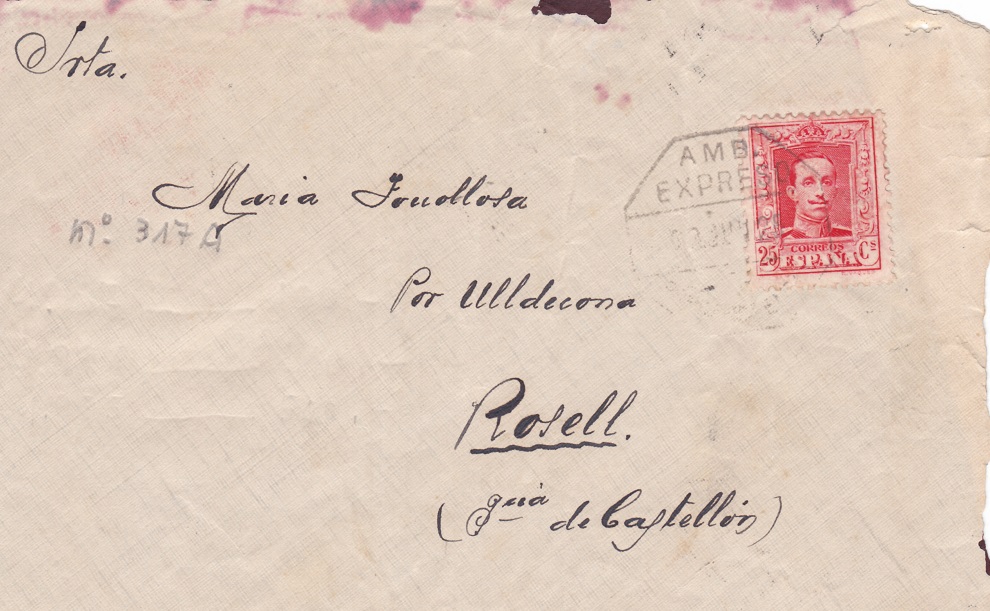 Srta.
Maria Fonollosa
nº 317A
Por Ulldecona
Rosell.
de Castellón)
AMB
EXPRE
CORREOS
25 ESPAÑA Cs